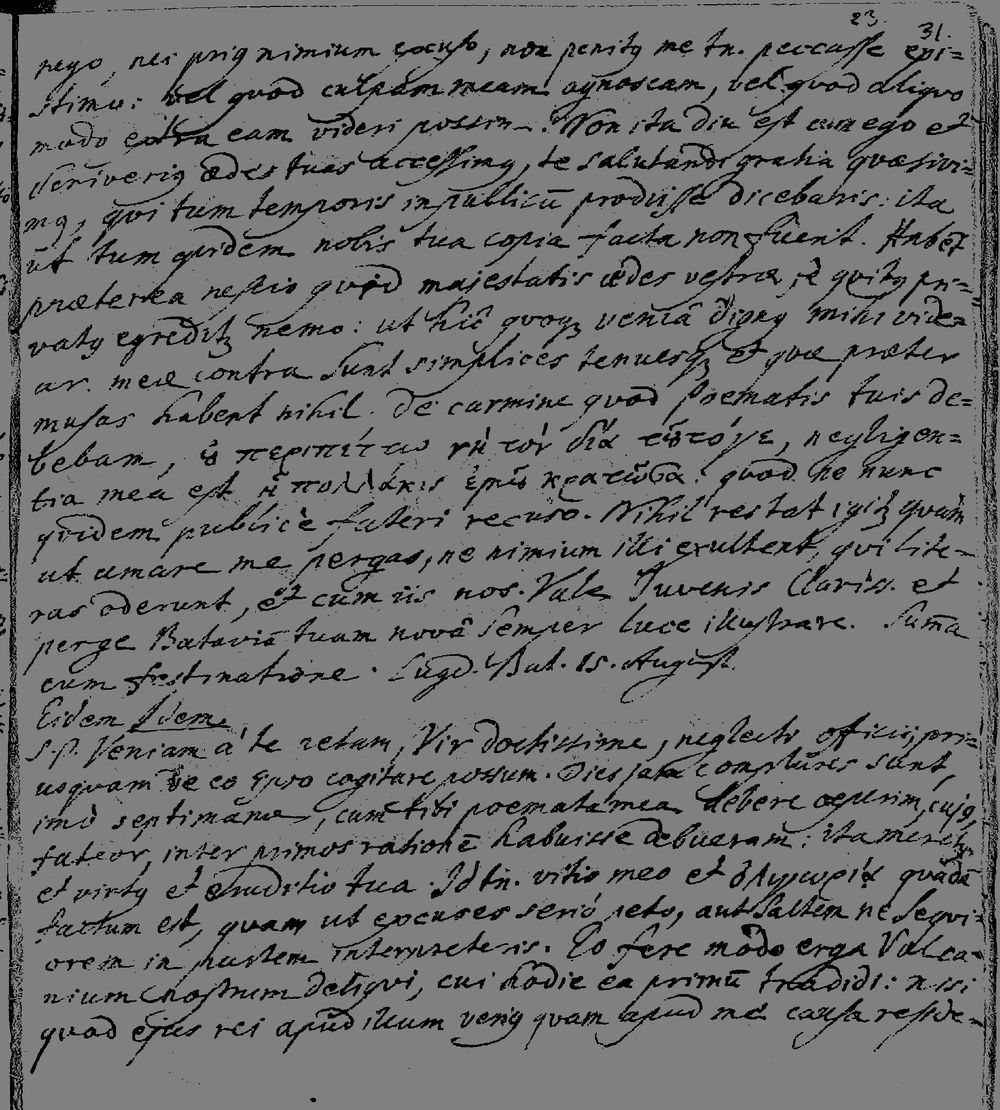 23.
31.
nego, nec prius nimium excuso, non penitus me tn. peccasse epi=
stimo: vel quod culpam meam agnoscam, vel quod aliquo
modo extra eam videri possim. Non ita diu est cum ego et
Scriverius ædes tuas accessimus, te salutandi gratia quæsivi=
mus, qui tum temporis in publicū prodiisse dicebaris: ita
ut tum quidem nobis tua copia facta non fuerit. Habet
præterea nescio quid majestatis ædes vestræ, è quibus pri=
vatus egreditur nemo: ut hic quoque veniâ dignus mihi vide=
ar. meæ contra sunt simplices tenuesque et quæ præter
musas habent nihil. De carmine quod poematis tuis de=
bebam, περιπίπτω νὴ τὸν δία, negligen=
tia mea est ἡ πολλάκις ἐμοῦ κρατοῦσα: quod ne nunc
quidem publicè fateri recuso. Nihil restat igitur quàm
ut amare me pergas, ne nimium illi exultent, qui lite=
ras oderunt, et cum iis nos. Vale Juvenis Clariss. et
perge Bataviā tuam novâ semper luce illustrare. Sum̄a
cum festinatione. Lugd. Bat. 15. August.
Eidem Idem.
S.P. Veniam à te petam, Vir doctissime, neglecti officii, pri=
usquam de eo cogitare possum. Dies jam complures sunt,
imò septimanæ, cum tibi poemata mea debere cœperim, cujus,
fateor, inter primos rationē habuisse debueram: ita meretur
et virtus et eruditio tua. Id tn. vitio meo et ὀλιγωρίᾳ quâdā
factum est, quam ut excuses seriò peto, aut saltem ne sequi=
orem in partem interpreteris. Eo fere modo erga Vulca=
nium nostrum deliqui, cui hodie ea primū tradidi: nisi
quod ejus rei apud illum venus quam apud me causa reside=